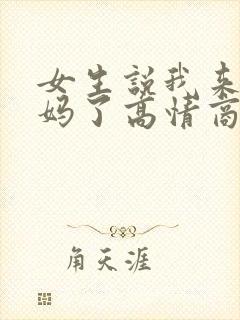 女生説我来
妈了高情商
角天涯